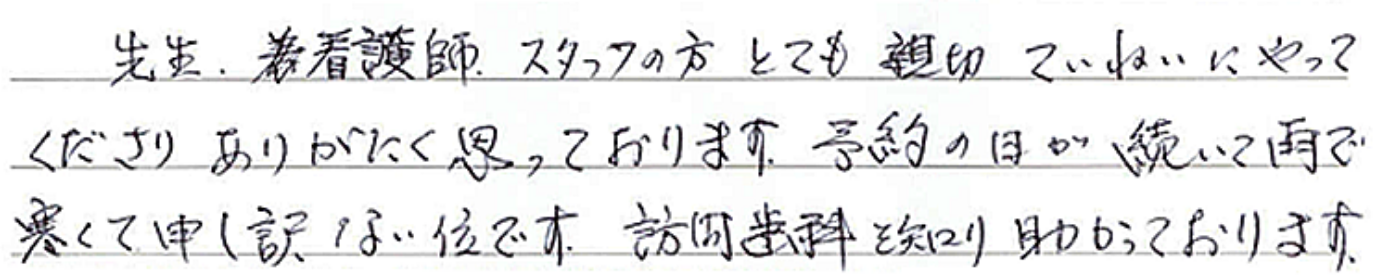 先生、看看護師、スタッフの方 とても 親切 ていねいに やって
くださり ありがたく思っております。予約の日が 続いて雨で
寒くて申し訳ない位です。訪問歯科を知り 助かっております。